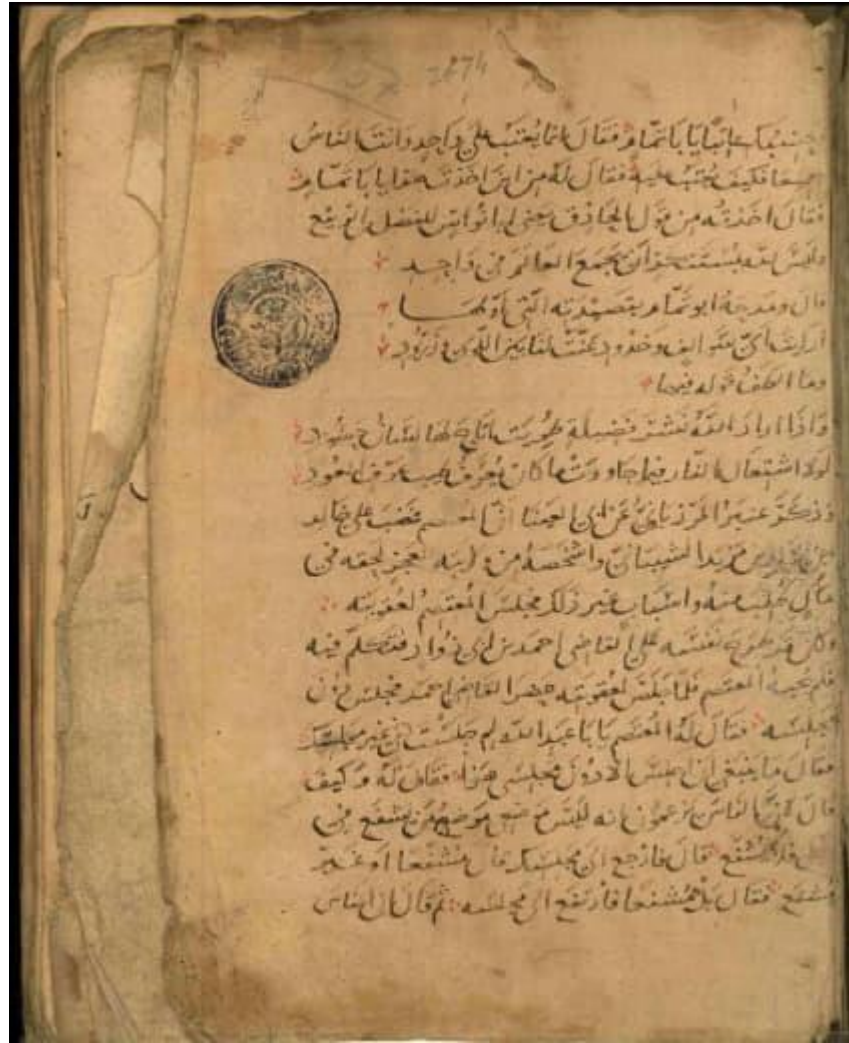 2274
عاتبا يا با تمام فقال انما يعتب على واحد وانت الناس
جميعا فكيف يعتب عليه فقال له من اين اخذت هذا يا با تمام
فقال اخذته من قول الحاذق يعني ابا نواس للفضل بن الربيع
وليس لله بمستنكر ان يجمع العالم في واحد
قال ومدحه ابو تمام بقصيدته التي اولها
أرأيت أي سوالف وخدود عنت لنا بين اللوى وزرود
وما ألطف قوله فيها
وإذا اراد الله نشر فضيلة طويت أتاح لها لسان حسود
لولا اشتعال النار فيما جاورت ما كان يعرف طيب عرف العود
وذكر غير المرزباني عن ابي العينا ان المعتصم غضب على خالد
بن يزيد بن مزيد الشيباني واشخصه من ولايته لعجز لحقه في
مال طلب منه واسباب غير ذلك فجلس المعتصم لعقوبته
وكان قد طرح نفسه على القاضي احمد بن ابي دواد فتكلم فيه
فلم يجبه المعتصم فلما جلس لعقوبته حضر القاضي احمد فجلس دون
مجلسه فقال له المعتصم يا با عبد الله لم جلست في غير مجلسك
فقال ما ينبغي ان اجلس الا دون مجلسي هذا فقال له وكيف
قال لان الناس يزعمون انه ليس موضعي موضع من يشفع في
فلا يشفع قال فارجع الى مجلسك قال مشفعا او غير
مشفع فقال بل مشفعا فارتفع الى مجلسه ثم قال ان الناس